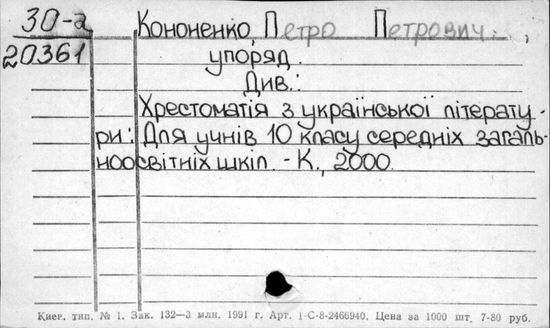 30-а
20361
Кононенко, Петро Петрович.,
упоряд.
Див.:
Хрестоматія з української літерату-
ри: Для учнів 10 класу середніх загаль-
ноосвітніх шкіл. - К., 2000.
Киев. тип. № 1. Зак. 132—3 млн. 1991 г. Арт. 1-С-8-2466940. Цена за 1000 шт. 7-80 руб.